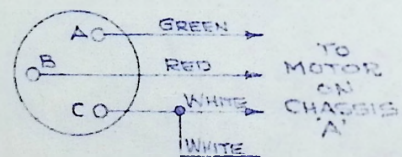 A GREEN
B RED
C WHITE
WHITE
TO
MOTOR
ON
CHASSIS
'A'